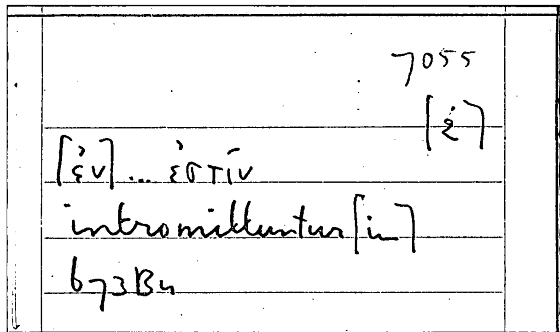 7055
[ἐ]
[ἐν]... ἐστίν
intromittuntur [in]
673B4